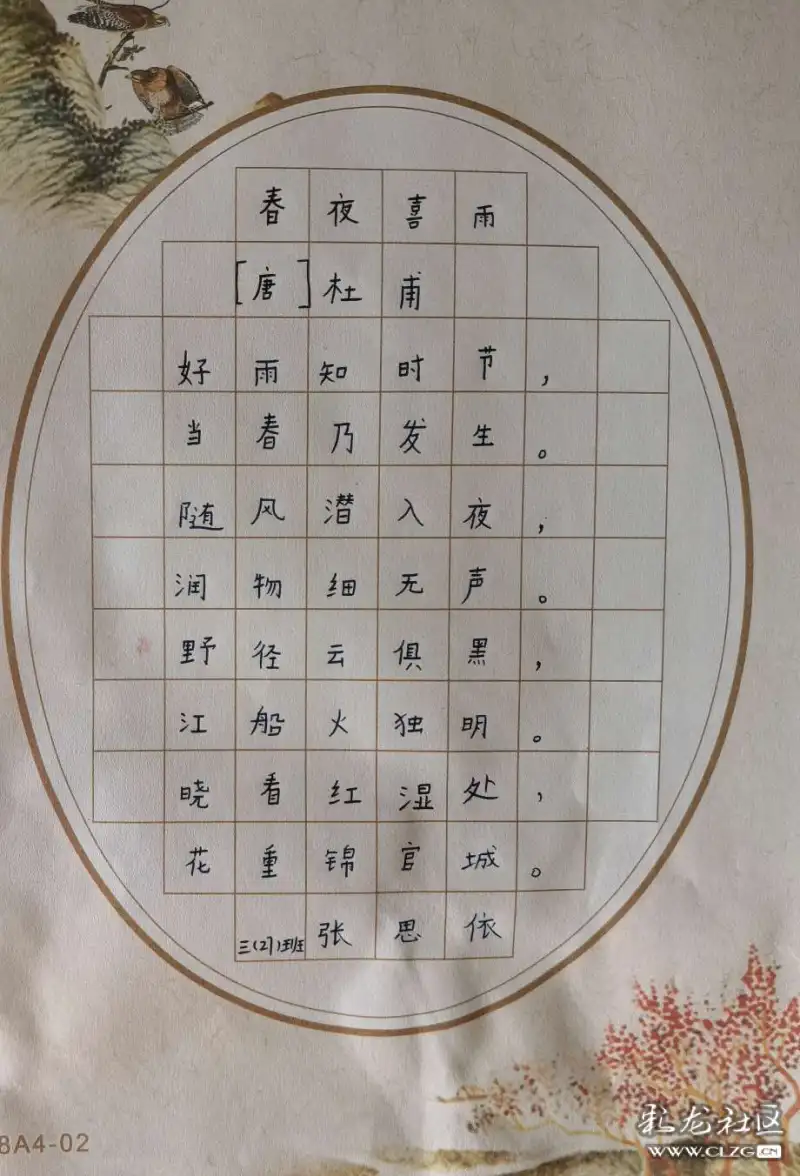 春夜喜雨
[唐]杜甫
好雨知时节，
当春乃发生。
随风潜入夜，
润物细无声。
野径云俱黑，
江船火独明。
晓看红湿处，
花重锦官城。
三(2)班张思依
8A4-02
彩龙社区
WWW.CLZG.CN